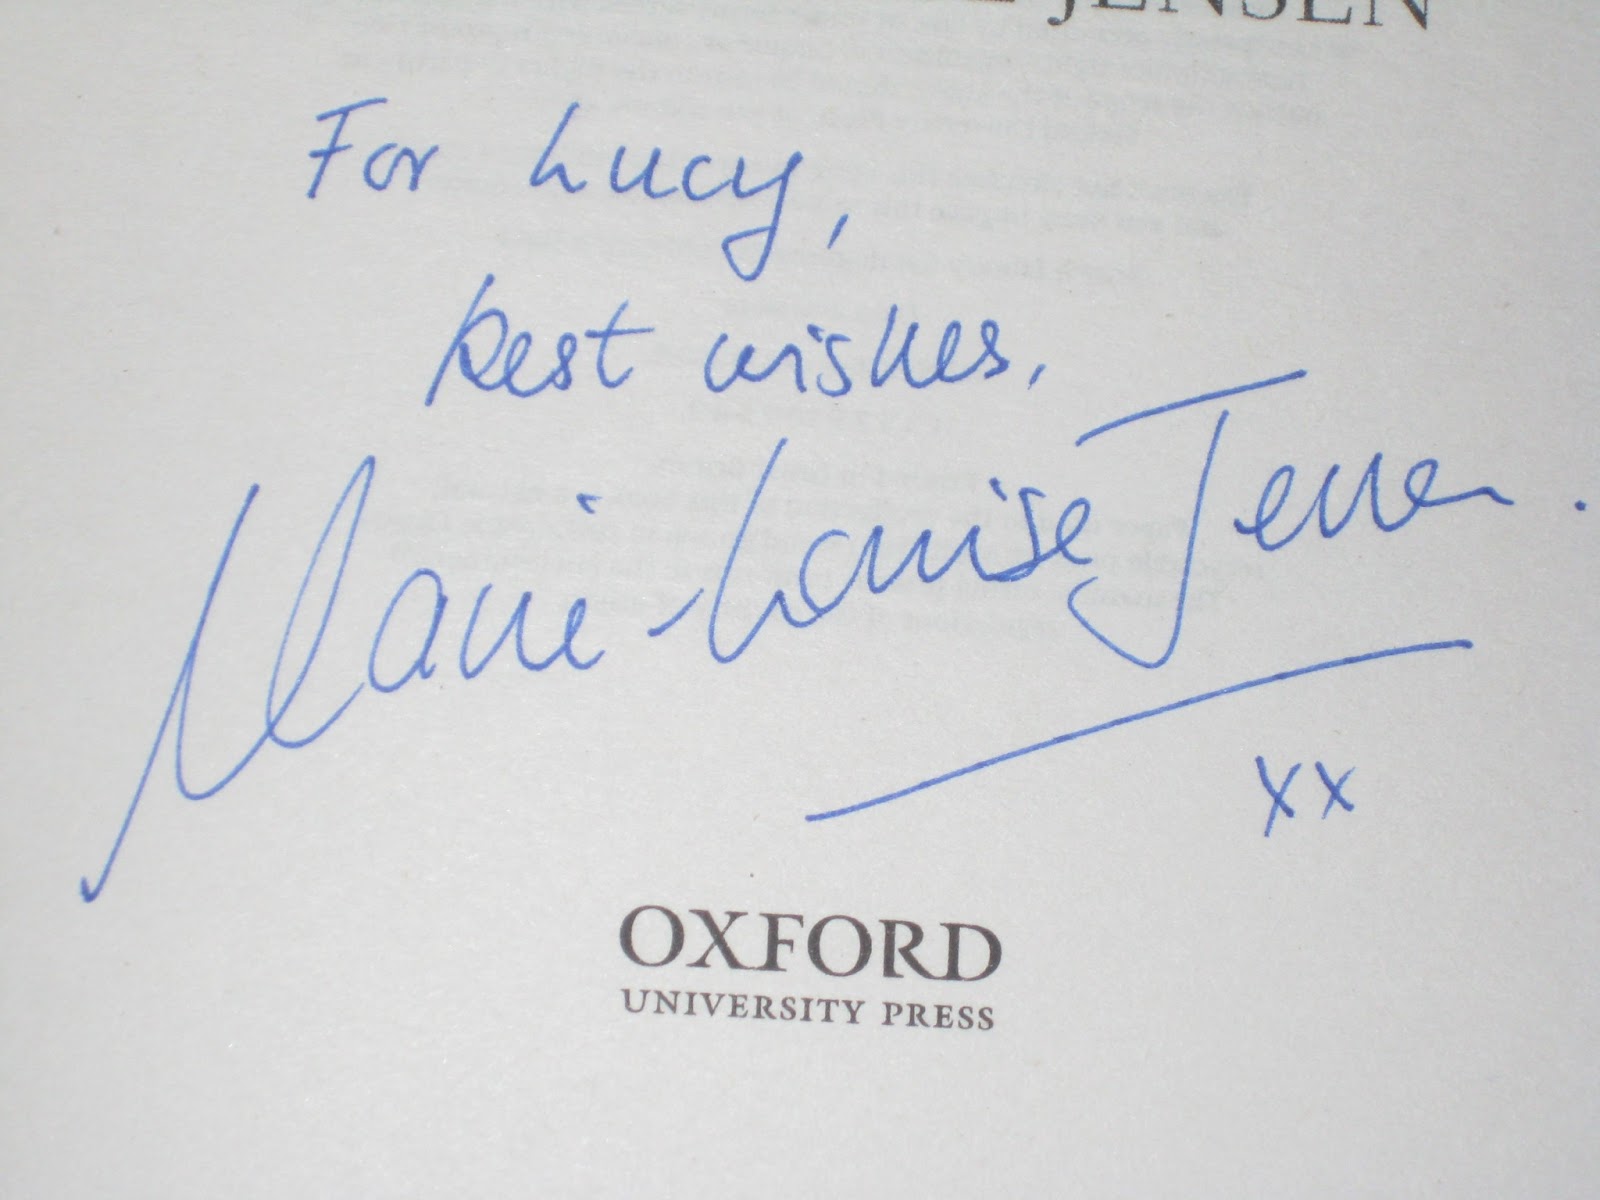 JENSEN
For Lucy,
best wishes,
Marie-Louise Jensen.
xx
OXFORD
UNIVERSITY PRESS